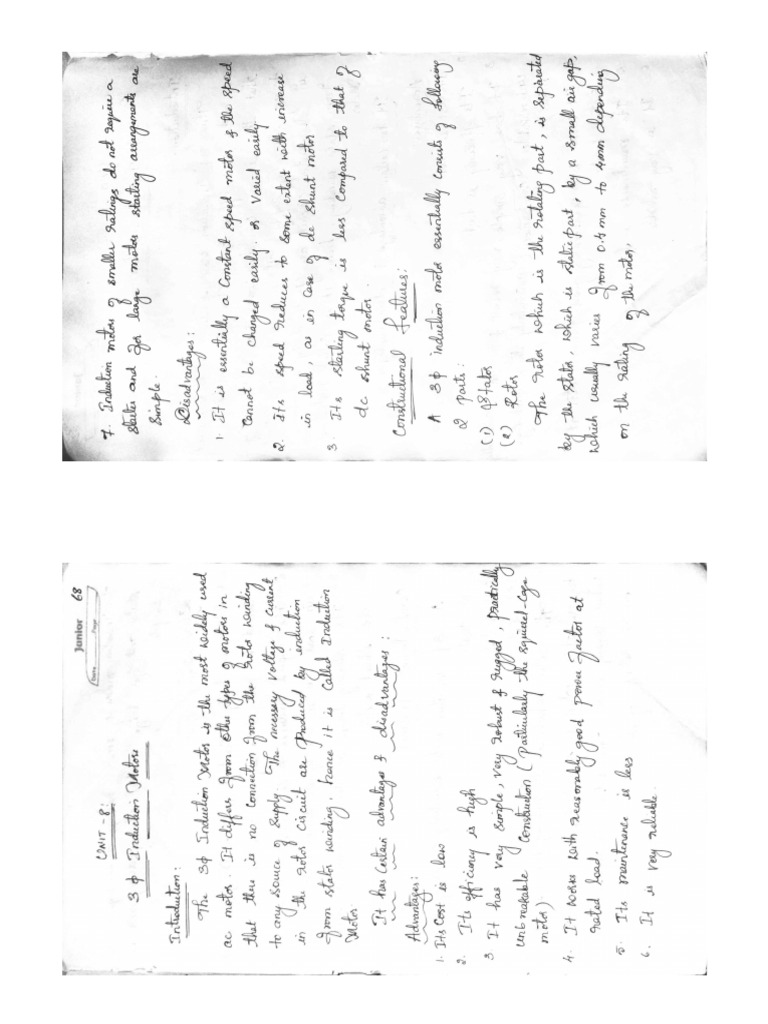 Janior 68
Date Page
UNIT - 8:
3 ϕ Induction Motors
Introduction:
The 3ϕ Induction Motor is the most widely used
ac motor. It differs from other types of motors in
that there is no connection from the rotor winding
to any source of supply. The necessary voltage & current
in the rotor circuit are produced by induction
from stator winding, hence it is called Induction
Motor
It has certain advantages & disadvantages:
Advantages:
1. Its Cost is low
2. Its efficiency is high
3 It has very simple, very robust & rugged, practically
unbreakable construction (particularly the squirrel-cage
motor)
4. It works with reasonably good power factor at
rated load.
5. Its maintenance is less
6. It is very reliable.
7. Induction motors of smaller ratings do not require a
starter and for large motors starting arrangements are
simple.
Disadvantages:
1. It is essentially a constant speed motor & the speed
cannot be changed easily. or varied easily.
2. Its speed reduces to some extent with increase
in load, as in case of dc shunt motor
3. Its starting torque is less compared to that of
dc shunt motor.
Constructional features:
A 3ϕ induction motor essentially consists of following
2 parts:
(1) Stator
(2) Rotor
The rotor which is the rotating part, is separated
by the stator, which is static part, by a small air gap,
which usually varies from 0.4mm to 4mm depending
on the rating of the motor.